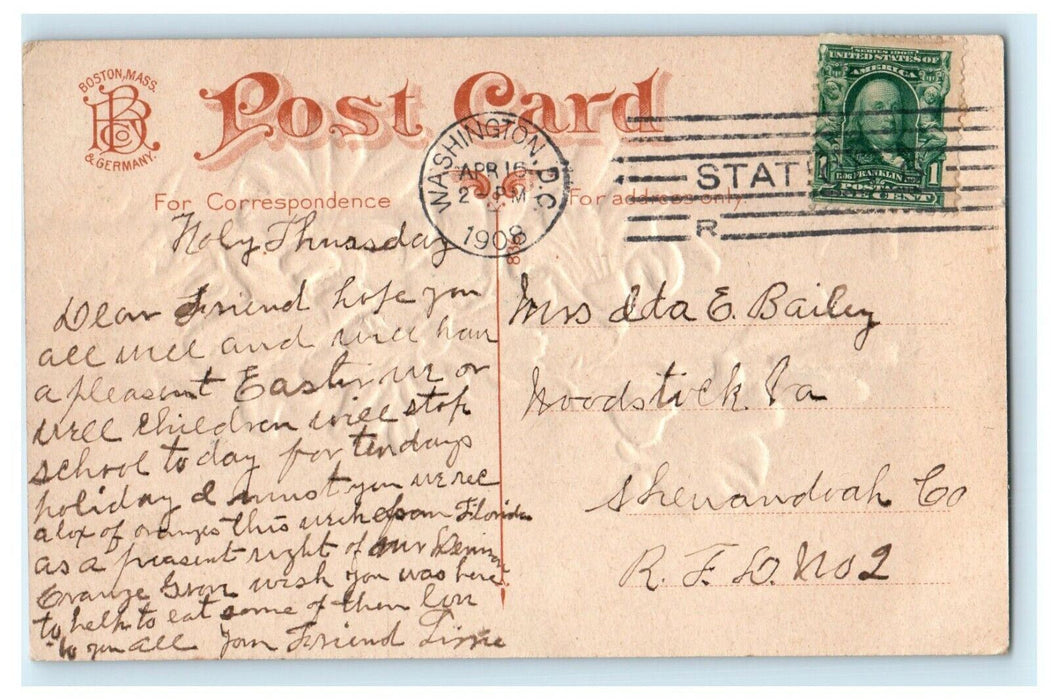 BOSTON, MASS.
& GERMANY.
Post Card
WASHINGTON, D.C.
APR 16
2 PM
1908
SERIES 1902
UNITED STATES OF
AMERICA
FRANKLIN
POSTAGE
1 ONE CENT 1
STAT
R
For Correspondence
For address only.
Holy Thursday
Dear Friend hope you
all well and will hav
a pleasant Easter we or
well children will stop
school to day for ten days
holiday & must you we rec
a box of oranges this week from Florida
as a present right of our
Orange Grov wish you was here
to help to eat some of them lov
to you all Your Friend Lizzie
Mrs Ida E. Bailey
Woodstock Va
Shenandoah Co
R. F. D. No 2